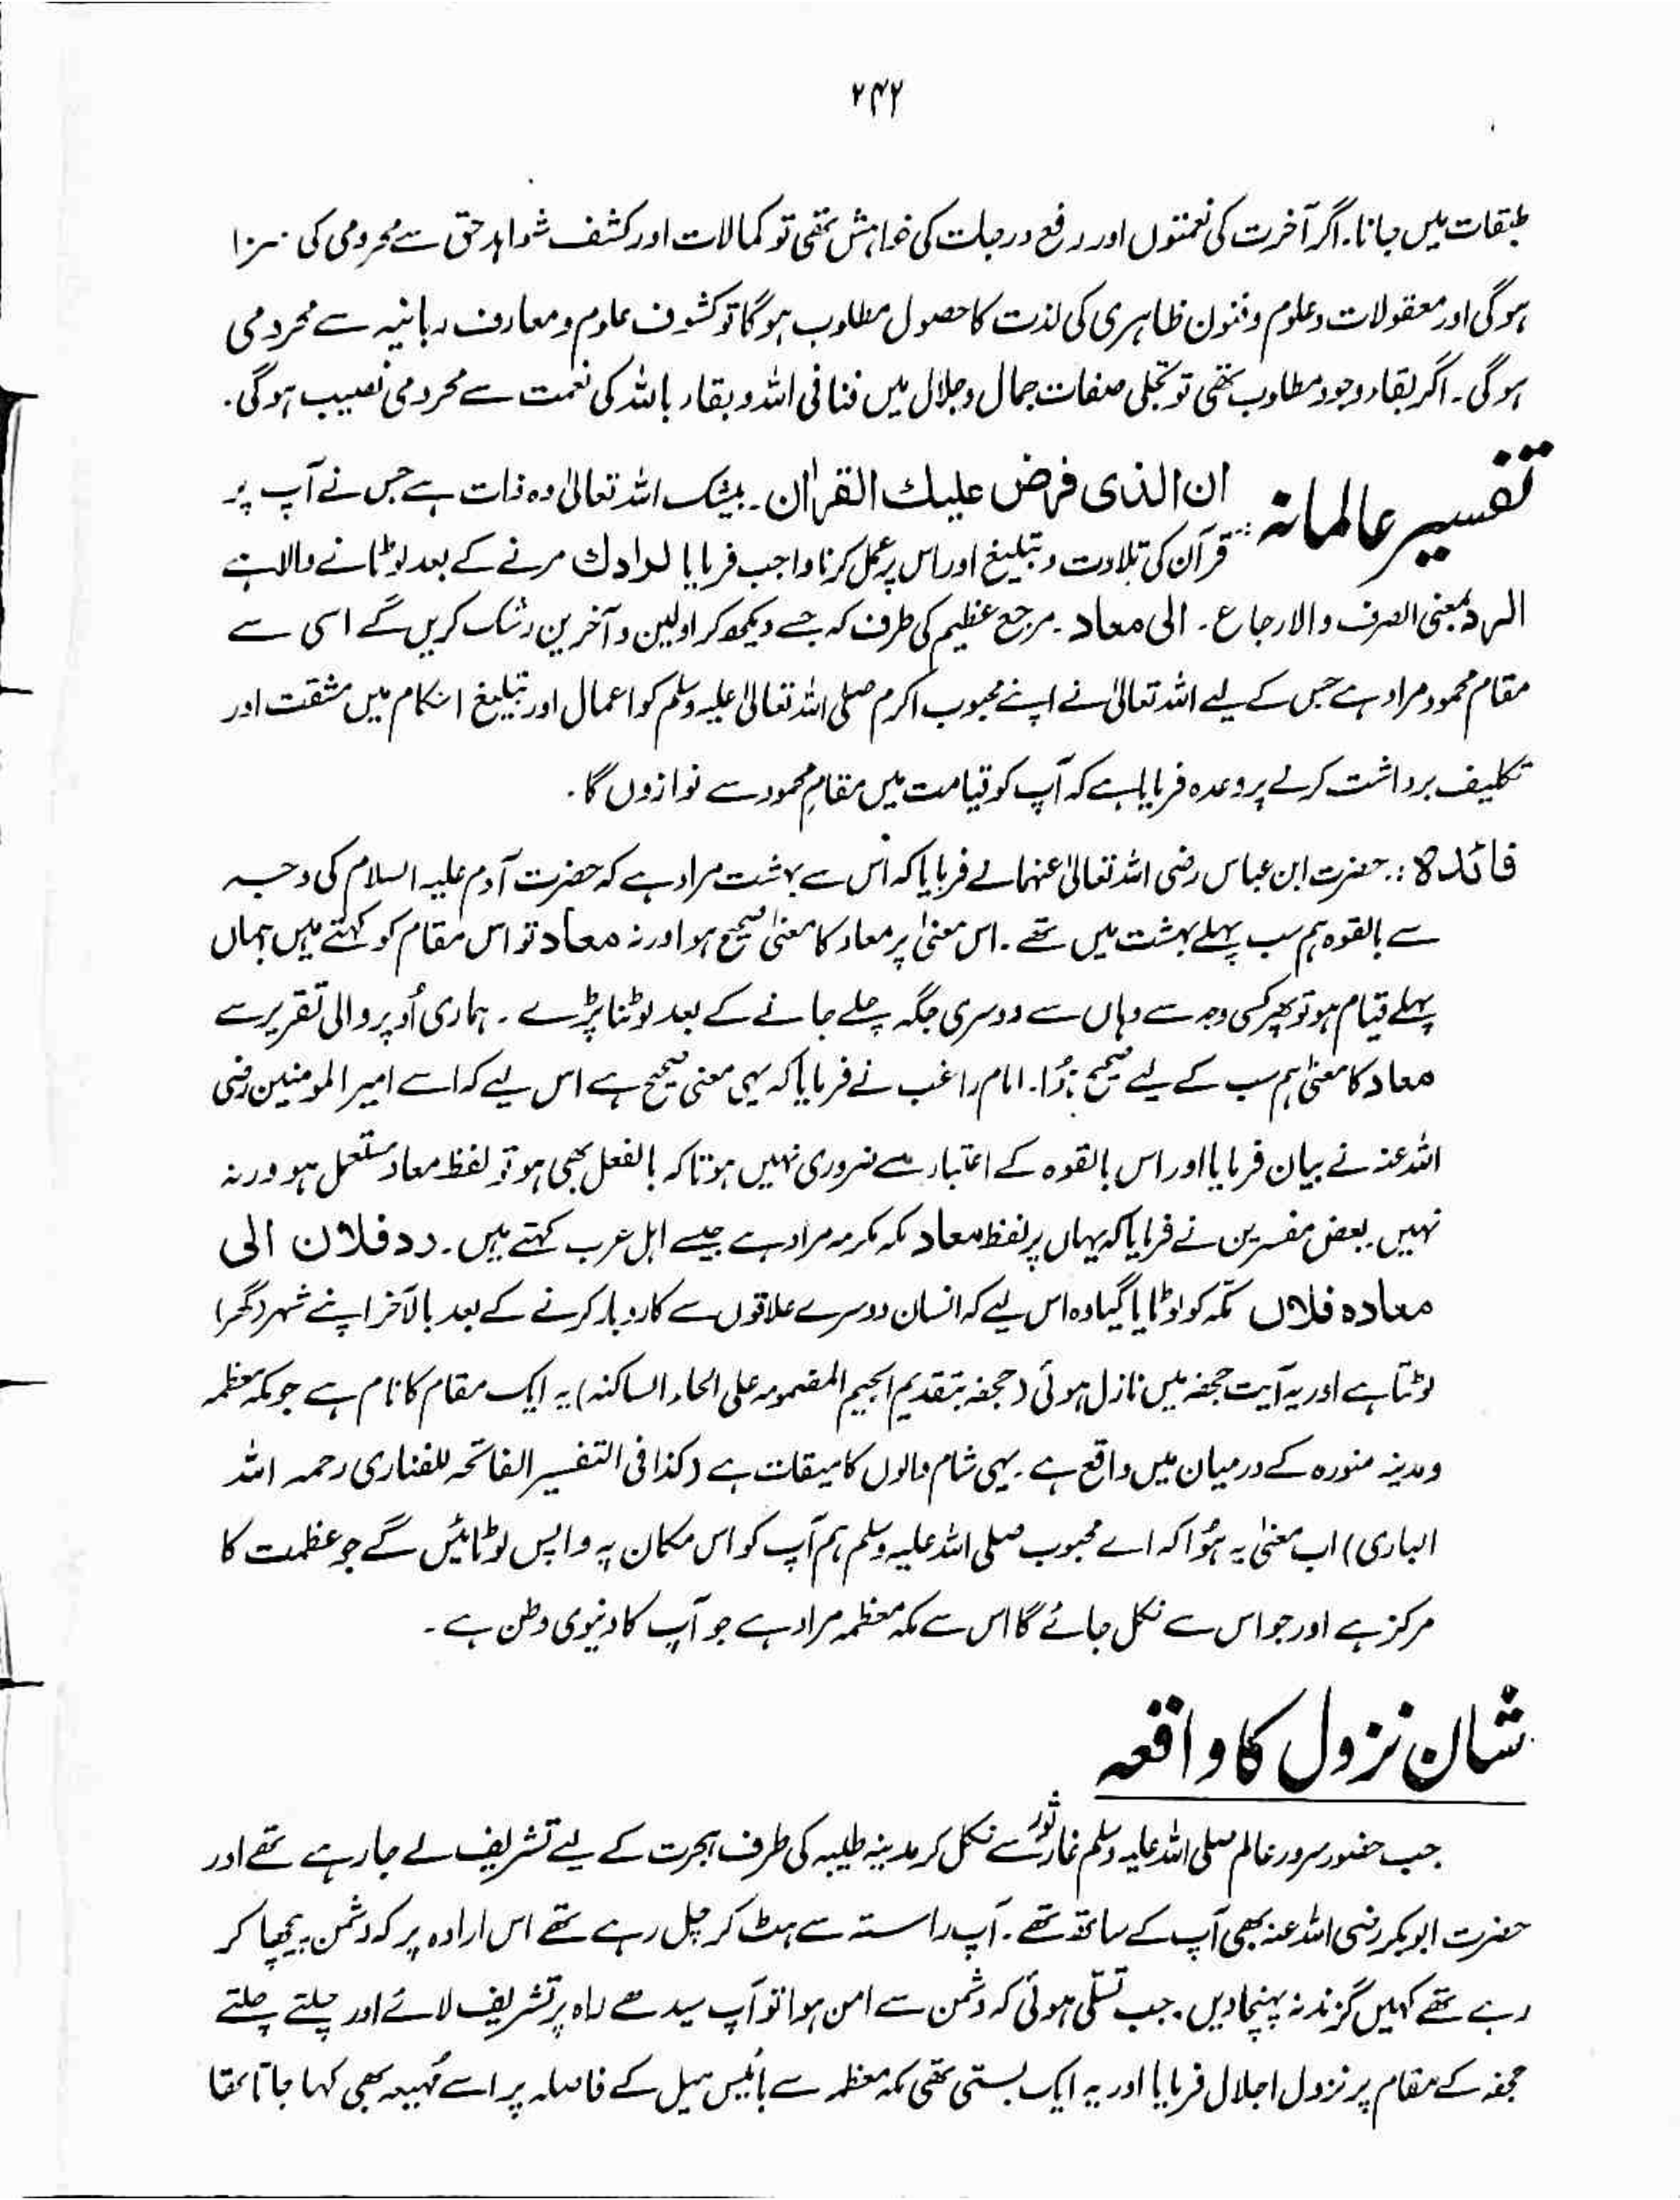 ۲۴۲
طبقات میں جانا۔ اگر آخرت کی نعمتوں اور رفع درجات کی خواہش تھی تو کمالات اور کشف شواہد حق سے محرومی کی سزا
ہوگی اور معقولات و علوم و فنون ظاہری کی لذت کا حصول مطلوب ہوگا تو کشوف علوم و معارف ربانیہ سے محرومی
ہوگی۔ اگر بقاء وجود مطلوب تھی تو تجلی صفات جمال و جلال میں فنا فی اللہ و بقاء باللہ کی نعمت سے محرومی نصیب ہوگی۔
تفسیر عالمانہ :: ان الذی فرض علیك القراٰن۔ بیشک اللہ تعالیٰ وہ ذات ہے جس نے آپ پر
قرآن کی تلاوت و تبلیغ اور اس پر عمل کرنا واجب فرمایا لرادك مرنے کے بعد لوٹانے والا ہے
الرد بمعنی الصرف والارجاع۔ الی معاد۔ مرجع عظیم کی طرف کہ جسے دیکھ کر اولین و آخرین رشک کریں گے اسی سے
مقام محمود مراد ہے جس کے لیے اللہ تعالیٰ نے اپنے محبوب اکرم صلی اللہ تعالیٰ علیہ وسلم کو اعمال اور تبلیغ احکام میں مشقت اور
تکلیف برداشت کرنے پر وعدہ فرمایا ہے کہ آپ کو قیامت میں مقامِ محمود سے نوازوں گا۔
فائدہ :: حضرت ابن عباس رضی اللہ تعالیٰ عنہما نے فرمایا کہ اس سے بہشت مراد ہے کہ حضرت آدم علیہ السلام کی وجہ
سے بالقوہ ہم سب پہلے بہشت میں تھے۔ اس معنیٰ پر معاد کا معنیٰ صحیح ہو اورنہ معاد تو اس مقام کو کہتے ہیں جہاں
پہلے قیام ہو تو پھر کسی وجہ سے وہاں سے دوسری جگہ چلے جانے کے بعد لوٹنا پڑے۔ ہماری اُوپر والی تقریر سے
معاد کا معنیٰ ہم سب کے لیے صحیح ہوُا۔ امام راغب نے فرمایا کہ یہی معنی صحیح ہے اس لیے کہ اسے امیر المومنین رضی
اللہ عنہ نے بیان فرمایا اور اس بالقوہ کے اعتبار سے ضروری نہیں ہوتا کہ بالفعل بھی ہو تو لفظ معاد مستعمل ہو ورنہ
نہیں۔ بعض مفسرین نے فرمایا کہ یہاں پر لفظ معاد مکہ مکرمہ مراد ہے جیسے اہل عرب کہتے ہیں۔ رد فلان الی
معادہ فلاں مکّہ کو لوٹایا گیا وہ اس لیے کہ انسان دوسرے علاقوں سے کاروبار کرنے کے بعد بالآخر اپنے شہر (گھر)
لوٹتا ہے اور یہ آیت جحفہ میں نازل ہوئی (جحفہ بتقدیم الجیم المضمومہ علی الحاء الساکنہ) یہ ایک مقام کا نام ہے جو مکہ معظمہ
و مدینہ منورہ کے درمیان میں واقع ہے۔ یہی شام والوں کا میقات ہے (کذا فی التفسیر الفاتحہ للفناری رحمہ اللہ
الباری) اب معنیٰ یہ ہوُا کہ اے محبوب صلی اللہ علیہ وسلم ہم آپ کو اس مکان پہ واپس لوٹائیں گے جو عظمت کا
مرکز ہے اور جو اس سے نکل جائے گا اس سے مکہ معظمہ مراد ہے جو آپ کا دنیوی وطن ہے۔
شان نزول کا واقعہ
جب حضور سرور عالم صلی اللہ علیہ وسلم غار ثور سے نکل کر مدینہ طیبہ کی طرف ہجرت کے لیے تشریف لے جا رہے تھے اور
حضرت ابو بکر رضی اللہ عنہ بھی آپ کے ساتھ تھے۔ آپ راستہ سے ہٹ کر چل رہے تھے اس ارادہ پر کہ دشمن پیچھا کر
رہے تھے کہیں گزند نہ پہنچا دیں۔ جب تسلّی ہوئی کہ دشمن سے امن ہوا تو آپ سیدھے راہ پر تشریف لائے اور چلتے چلتے
جحفہ کے مقام پر نزول اجلال فرمایا اور یہ ایک بستی تھی مکہ معظمہ سے بائیس میل کے فاصلہ پر اسے مُہیعہ بھی کہا جاتا تھا